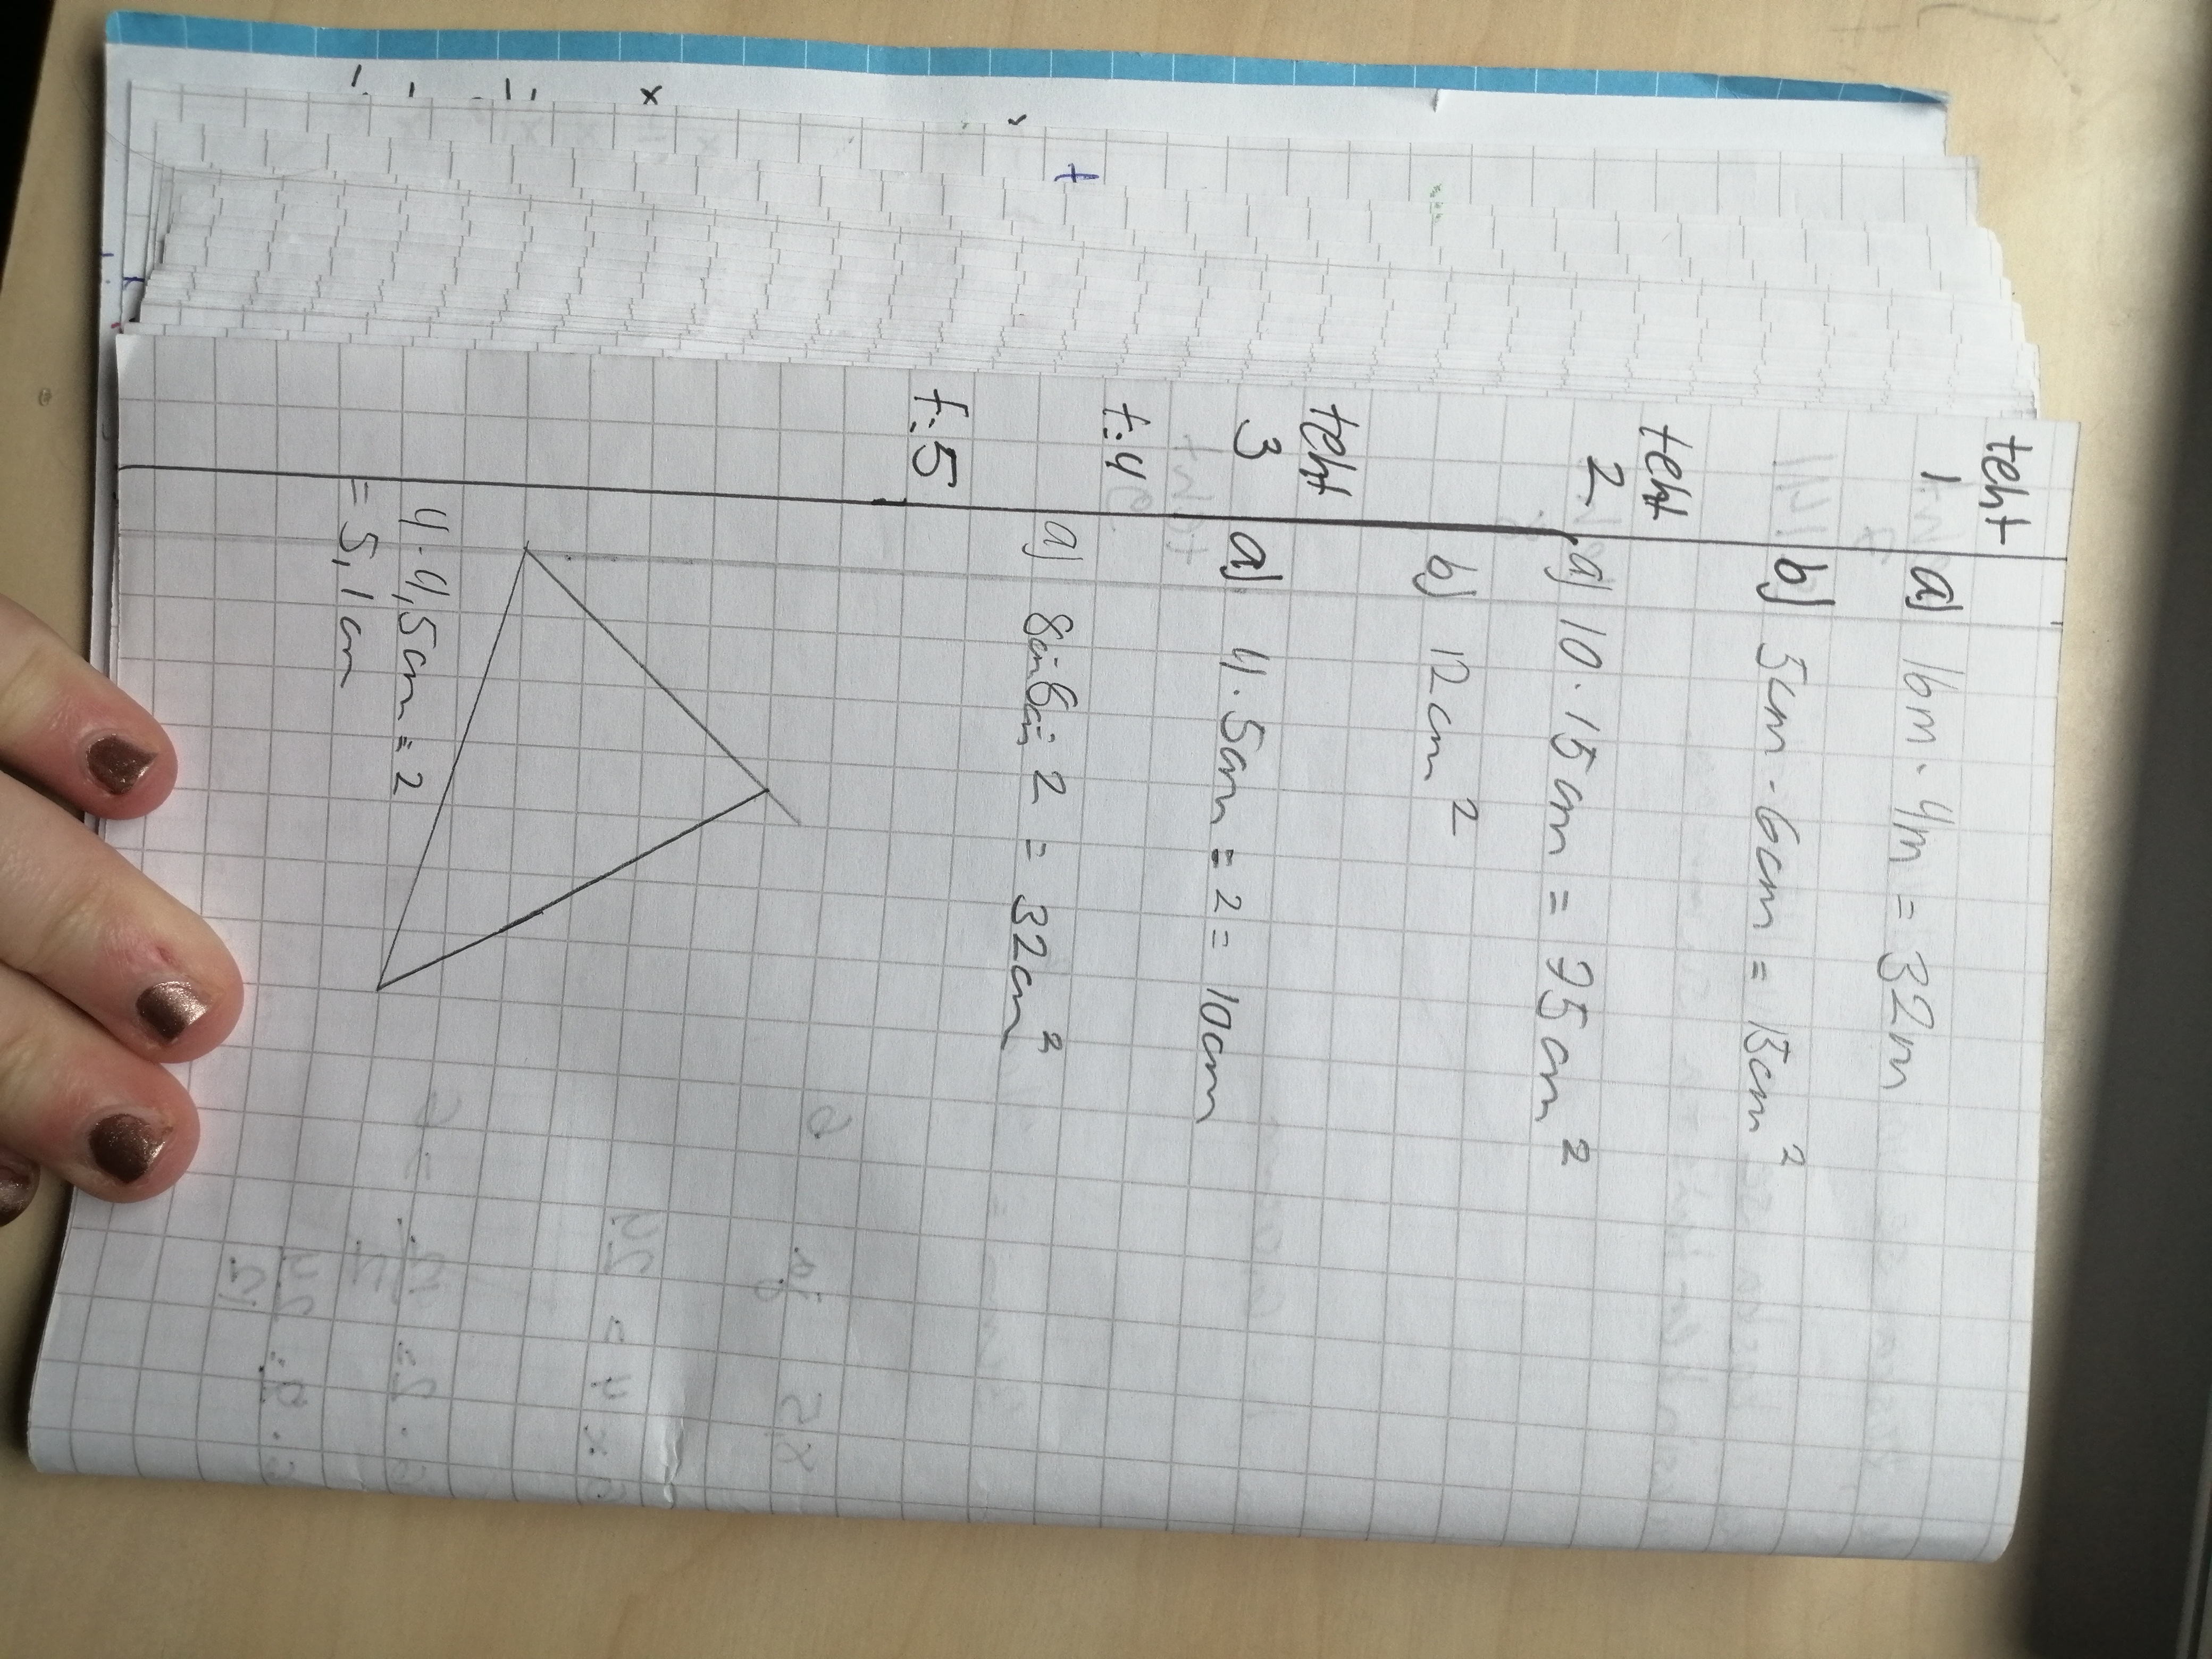 teht
1 a) 16m · 4m = 32m
b) 5cm · 6cm = 15cm²
teht
2 a) 10 · 15cm = 75cm²
b) 12cm²
teht
3 a) 4 · 5cm = 2 = 10cm
t.4
a) 2 = 32cm²
t.5
4 · 4,5cm = 2
= 5,1cm